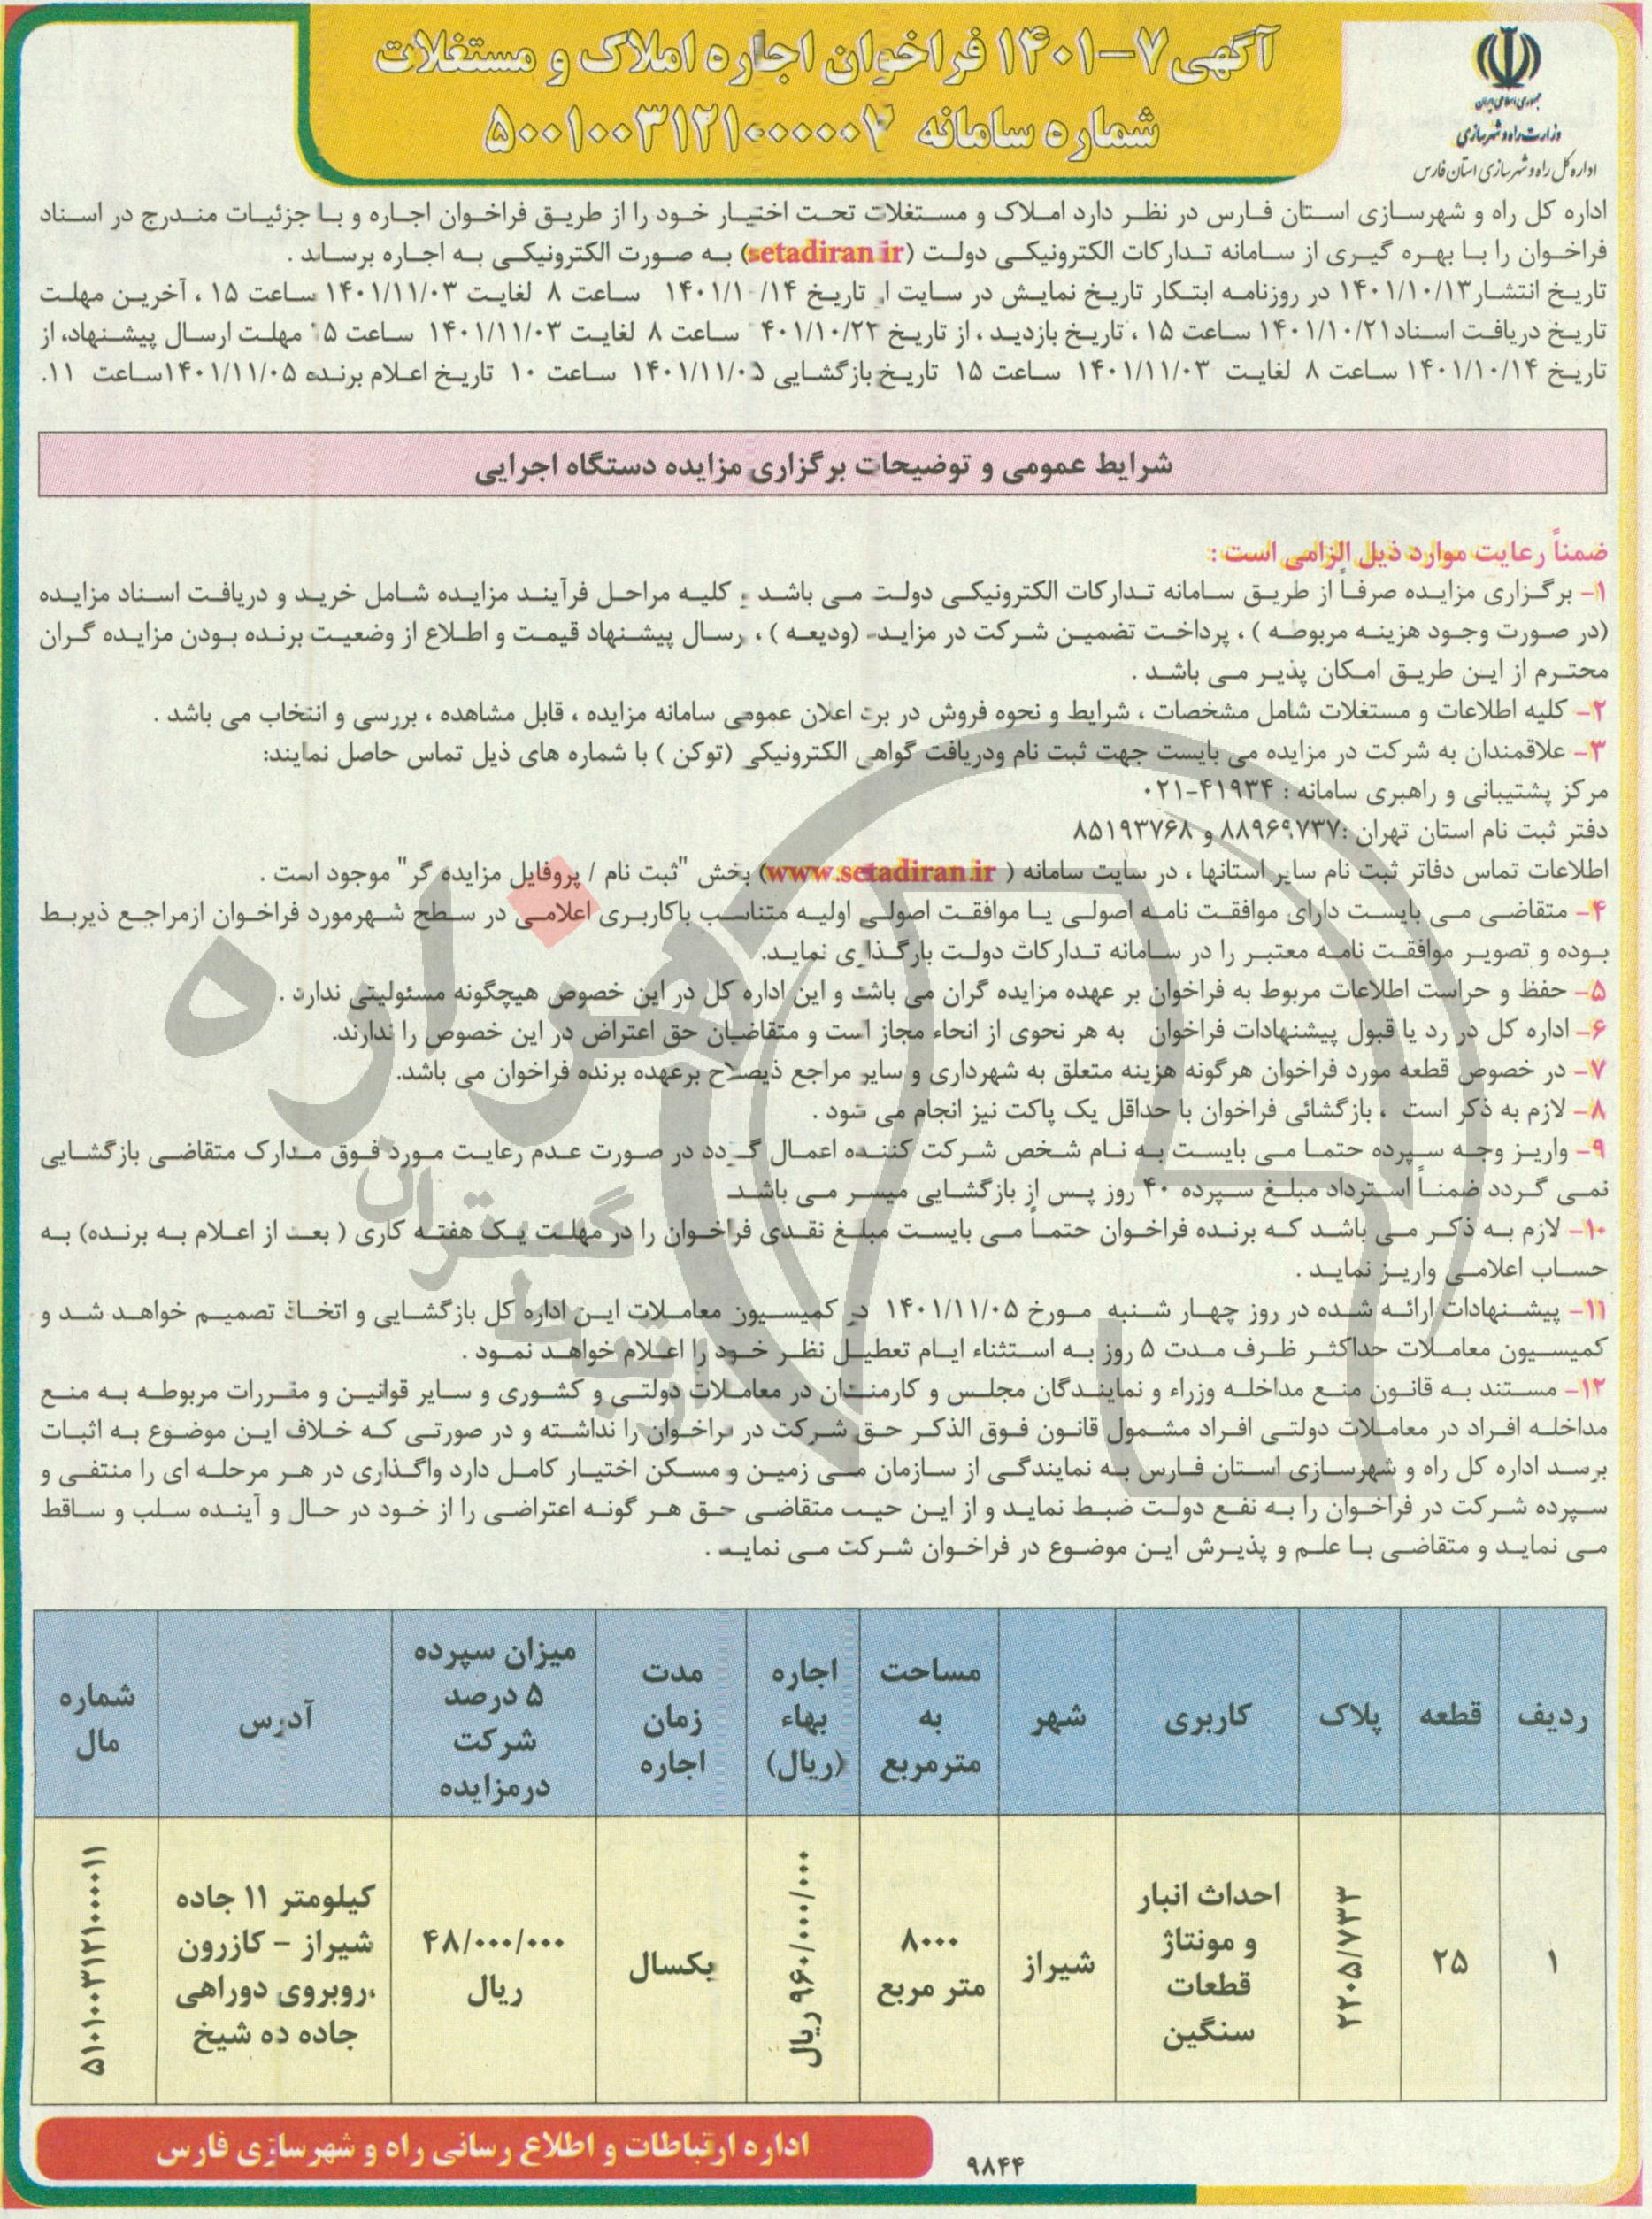 آگهی ۷-۱۴۰۱ فراخوان اجاره املاک و مستغلات
شماره سامانه ۵۰۰۱۰۰۳۱۲۱۰۰۰۰۰۷
جمهوری اسلامی ایران
وزارت راه و شهرسازی
اداره کل راه و شهرسازی استان فارس
اداره کل راه و شهرسازی استان فارس در نظر دارد املاک و مستغلات تحت اختیار خود را از طریق فراخوان اجاره و با جزئیات مندرج در اسناد
فراخوان را با بهره گیری از سامانه تدارکات الکترونیکی دولت (setadiran.ir) به صورت الکترونیکی به اجاره برساند .
تاریخ انتشار۱۴۰۱/۱۰/۱۳ در روزنامه ابتکار تاریخ نمایش در سایت از تاریخ ۱۴۰۱/۱۰/۱۴ ساعت ۸ لغایت ۱۴۰۱/۱۱/۰۳ ساعت ۱۵ ، آخرین مهلت
تاریخ دریافت اسناد۱۴۰۱/۱۰/۲۱ ساعت ۱۵ ، تاریخ بازدید ، از تاریخ ۱۴۰۱/۱۰/۲۲ ساعت ۸ لغایت ۱۴۰۱/۱۱/۰۳ ساعت ۱۵ مهلت ارسال پیشنهاد، از
تاریخ ۱۴۰۱/۱۰/۱۴ ساعت ۸ لغایت ۱۴۰۱/۱۱/۰۳ ساعت ۱۵ تاریخ بازگشایی ۱۴۰۱/۱۱/۰۵ ساعت ۱۰ تاریخ اعلام برنده ۱۴۰۱/۱۱/۰۵ساعت ۱۱.
شرایط عمومی و توضیحات برگزاری مزایده دستگاه اجرایی
ضمناً رعایت موارد ذیل الزامی است :
۱- برگزاری مزایده صرفاً از طریق سامانه تدارکات الکترونیکی دولت می باشد و کلیه مراحل فرآیند مزایده شامل خرید و دریافت اسناد مزایده
(در صورت وجود هزینه مربوطه ) ، پرداخت تضمین شرکت در مزایده (ودیعه ) ، ارسال پیشنهاد قیمت و اطلاع از وضعیت برنده بودن مزایده گران
محترم از این طریق امکان پذیر می باشد .
۲- کلیه اطلاعات و مستغلات شامل مشخصات ، شرایط و نحوه فروش در برد اعلان عمومی سامانه مزایده ، قابل مشاهده ، بررسی و انتخاب می باشد .
۳- علاقمندان به شرکت در مزایده می بایست جهت ثبت نام ودریافت گواهی الکترونیکی (توکن ) با شماره های ذیل تماس حاصل نمایند:
مرکز پشتیبانی و راهبری سامانه : ۴۱۹۳۴-۰۲۱
دفتر ثبت نام استان تهران :۸۸۹۶۹۷۳۷ و ۸۵۱۹۳۷۶۸
اطلاعات تماس دفاتر ثبت نام سایر استانها ، در سایت سامانه ( www.setadiran.ir) بخش "ثبت نام / پروفایل مزایده گر" موجود است .
۴- متقاضی می بایست دارای موافقت نامه اصولی یا موافقت اصولی اولیه متناسب باکاربری اعلامی در سطح شهرمورد فراخوان ازمراجع ذیربط
بوده و تصویر موافقت نامه معتبر را در سامانه تدارکات دولت بارگذاری نماید.
۵- حفظ و حراست اطلاعات مربوط به فراخوان بر عهده مزایده گران می باشد و این اداره کل در این خصوص هیچگونه مسئولیتی ندارد .
۶- اداره کل در رد یا قبول پیشنهادات فراخوان به هر نحوی از انحاء مجاز است و متقاضیان حق اعتراض در این خصوص را ندارند.
۷- در خصوص قطعه مورد فراخوان هرگونه هزینه متعلق به شهرداری و سایر مراجع ذیصلاح برعهده برنده فراخوان می باشد.
۸- لازم به ذکر است ، بازگشائی فراخوان با حداقل یک پاکت نیز انجام می شود .
۹- واریز وجه سپرده حتما می بایست به نام شخص شرکت کننده اعمال گردد در صورت عدم رعایت مورد فوق مدارک متقاضی بازگشایی
نمی گردد ضمناً استرداد مبلغ سپرده ۴۰ روز پس از بازگشایی میسر می باشد
۱۰- لازم به ذکر می باشد که برنده فراخوان حتماً می بایست مبلغ نقدی فراخوان را در مهلت یک هفته کاری ( بعد از اعلام به برنده) به
حساب اعلامی واریز نماید .
۱۱- پیشنهادات ارائه شده در روز چهار شنبه مورخ ۱۴۰۱/۱۱/۰۵ در کمیسیون معاملات این اداره کل بازگشایی و اتخاذ تصمیم خواهد شد و
کمیسیون معاملات حداکثر ظرف مدت ۵ روز به استثناء ایام تعطیل نظر خود را اعلام خواهد نمود .
۱۲- مستند به قانون منع مداخله وزراء و نمایندگان مجلس و کارمندان در معاملات دولتی و کشوری و سایر قوانین و مقررات مربوطه به منع
مداخله افراد در معاملات دولتی افراد مشمول قانون فوق الذکر حق شرکت در فراخوان را نداشته و در صورتی که خلاف این موضوع به اثبات
برسد اداره کل راه و شهرسازی استان فارس به نمایندگی از سازمان ملی زمین و مسکن اختیار کامل دارد واگذاری در هر مرحله ای را منتفی و
سپرده شرکت در فراخوان را به نفع دولت ضبط نماید و از این حیث متقاضی حق هر گونه اعتراضی را از خود در حال و آینده سلب و ساقط
می نماید و متقاضی با علم و پذیرش این موضوع در فراخوان شرکت می نماید .
ردیف
قطعه
پلاک
کاربری
شهر
مساحت
به
مترمربع
اجاره
بهاء
(ریال)
مدت
زمان
اجاره
میزان سپرده
۵ درصد
شرکت
درمزایده
آدرس
شماره
مال
۱
۲۵
۲۲۰۵/۷۳۳
احداث انبار
و مونتاژ
قطعات
سنگین
شیراز
۸۰۰۰
متر مربع
۹۶۰/۰۰۰/۰۰۰ ریال
یکسال
۴۸/۰۰۰/۰۰۰
ریال
کیلومتر ۱۱ جاده
شیراز - کازرون
،روبروی دوراهی
جاده ده شیخ
۵۱۰۱۰۰۳۱۲۱۰۰۰۰۱۱
اداره ارتباطات و اطلاع رسانی راه و شهرسازی فارس
۹۸۴۴
هزاره
گستران